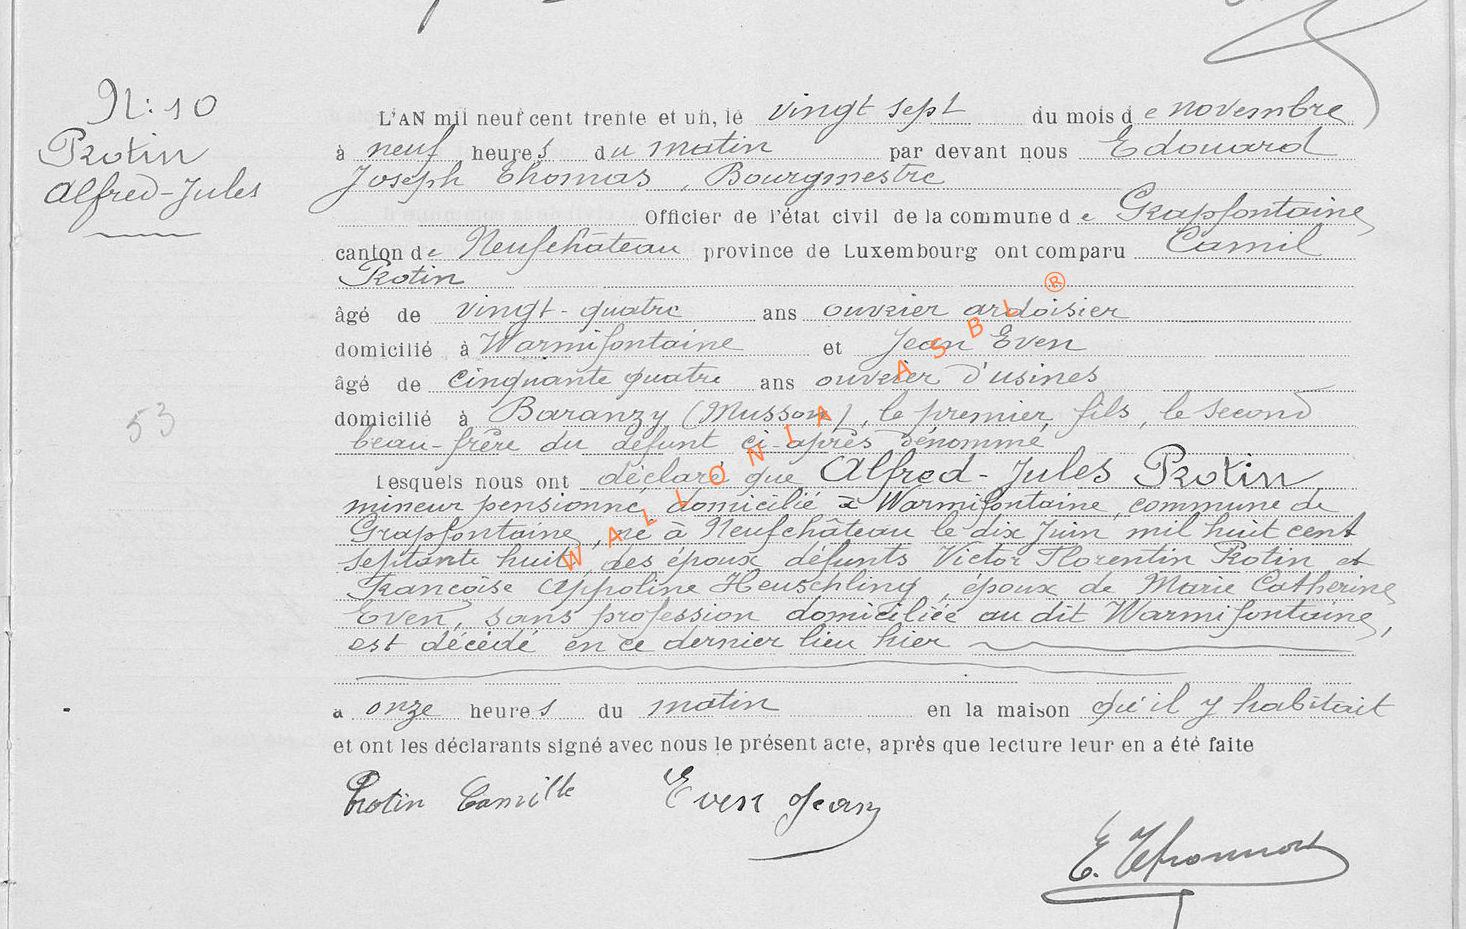 N: 10
Rotin
Alfred-Jules
53
L'AN mil neuf cent trente et un, le vingt sept du mois de novembre
à neuf heures du matin par devant nous Edouard
Joseph Thomas, Bourgmestre
Officier de l'état civil de la commune de Grapfontaine
canton de Neufchâteau province de Luxembourg ont comparu Camil
Rotin
âgé de vingt-quatre ans ouvrier ardoisier
domicilié à Warmifontaine et Jean Even
âgé de cinquante quatre ans ouvrier d'usines
domicilié à Baranzy (Musson), le premier, fils, le second
beau-frère du défunt ci-après dénommé
Lesquels nous ont déclaré que Alfred-Jules Rotin
mineur pensionné, domicilié à Warmifontaine, commune de
Grapfontaine, né à Neufchâteau le dix juin mil huit cent
septante huit, des époux défunts Victor Florentin Rotin et
Françoise Appoline Heuschling, époux de Marie Catherine
Even, sans profession domiciliée au dit Warmifontaine,
est décédé en ce dernier lieu hier
à onze heures du matin en la maison qu'il y habitait
et ont les déclarants signé avec nous le présent acte, après que lecture leur en a été faite
Rotin Camille Even Jean
E. Thomas
WALLONIA ASBL ®